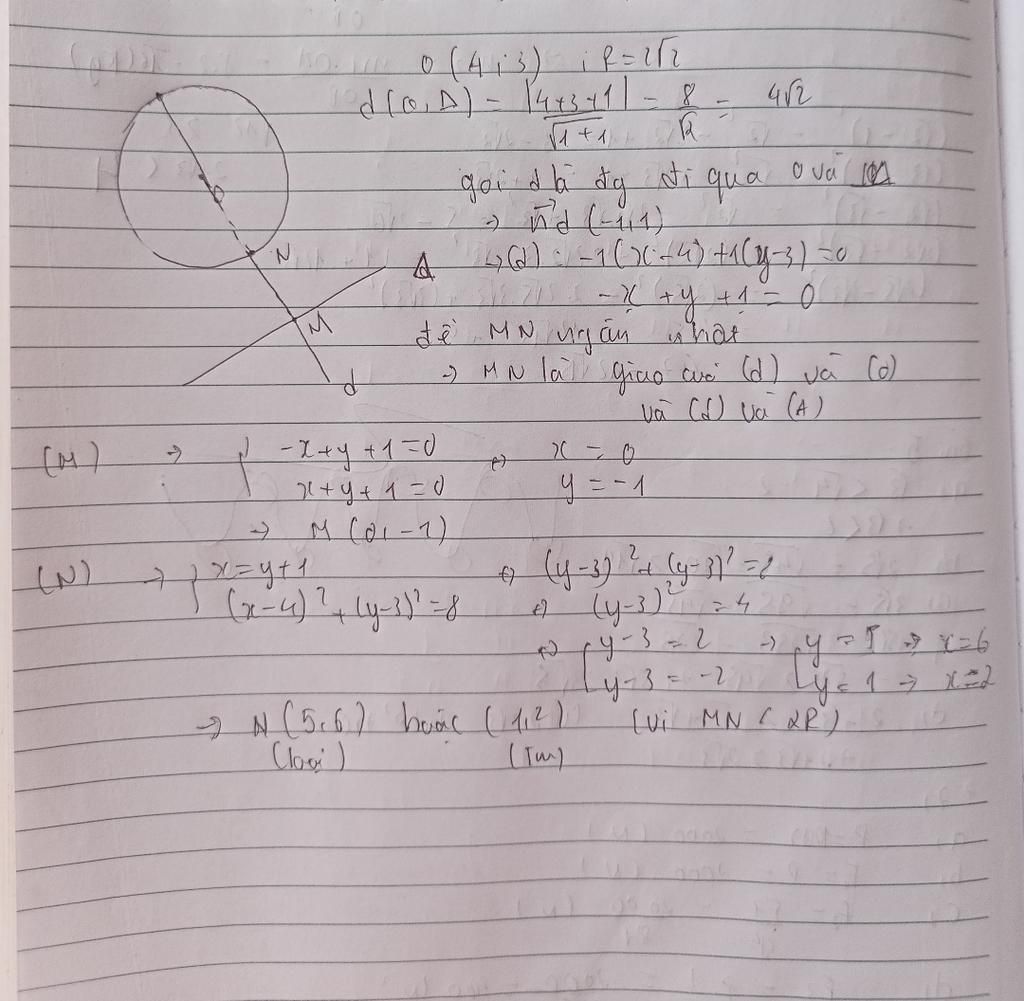 O (4;3) ; R = 2√2
d(O,Δ) = |4+3+1| / √1+1 = 8/√2 = 4√2
gọi d là đg đi qua O và
→ n⃗d (-1,1)
→ (d): -1(x-4) +1(y-3) = 0
-x + y + 1 = 0
để MN ngắn nhất
→ MN là giao của (d) và (O)
và (d) và (Δ)
O
N
Δ
M
d
(M) → { -x+y+1=0 ⇔ x = 0
x+y+1=0 y = -1
→ M (0,-1)
(N) → { x=y+1 ⇔ (y-3)² + (y-3)² = 8
(x-4)² + (y-3)² = 8 ⇔ (y-3)² = 4
⇔ [ y-3 = 2 → [ y = 5 → x=6
y-3 = -2 y = 1 → x=2
→ N (5,6) hoặc (1,2) (vì MN < 2R)
(loại) (Tm)